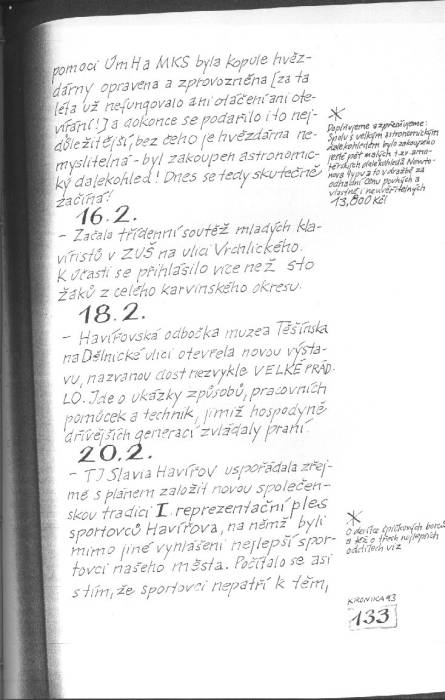 pomocí ÚmH a MKS byla kopule hvěz-
dárny opravena a zprovozněna [za ta
léta už nefungovalo ani otáčení ani ote-
vírání!] a dokonce se podařilo i to nej-
důležitější, bez čeho je hvězdárna ne-
myslitelná - byl zakoupen astronomic-
ký dalekohled! Dnes se tedy skutečně
začíná!
16.2.
- Začala třídenní soutěž mladých kla-
víristů v ZUŠ na ulici Vrchlického.
K účasti se přihlásilo více než sto
žáků z celého karvinského okresu.
18.2.
- Havířovská odbočka muzea Těšínska
na Dělnické ulici otevřela novou výsta-
vu, nazvanou dost nezvykle VELKÉ PRÁD-
LO. Jde o ukázky způsobů, pracovních
pomůcek a technik, jimiž hospodyně
dřívějších generací zvládaly praní.
20.2.
- TJ Slavia Havířov uspořádala zřej-
mě s plánem založit novou společen-
skou tradici I. reprezentační ples
sportovců Havířova, na němž byli
mimo jiné vyhlášeni nejlepší spor-
tovci našeho města. Počítalo se asi
s tím, že sportovci nepatří k těm,
*
Doplňujeme a zpřesňujeme:
Spolu s velkým astronomickým
dalekohledem bylo zakoupeno
ještě pět malých tzv. ama-
térských dalekohledů Newto-
nova typu a to v dražbě za
odhadní cenu pouhých a
vlastně i neuvěřitelných
13,800 Kč!
*
O desítce špičkových borců
a též o třech nejlepších
oddílech viz
KRONIKA 93
133